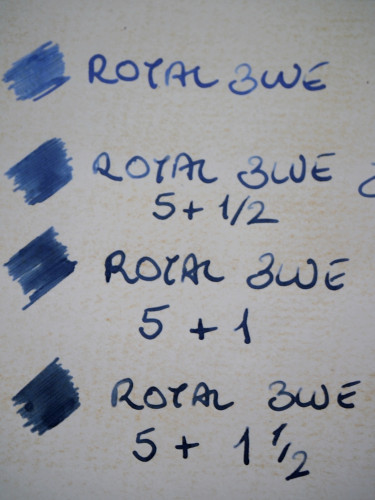 ROYAL BLUE
ROYAL BLUE
5 + 1/2
ROYAL BLUE
5 + 1
ROYAL BLUE
5 + 1 1/2